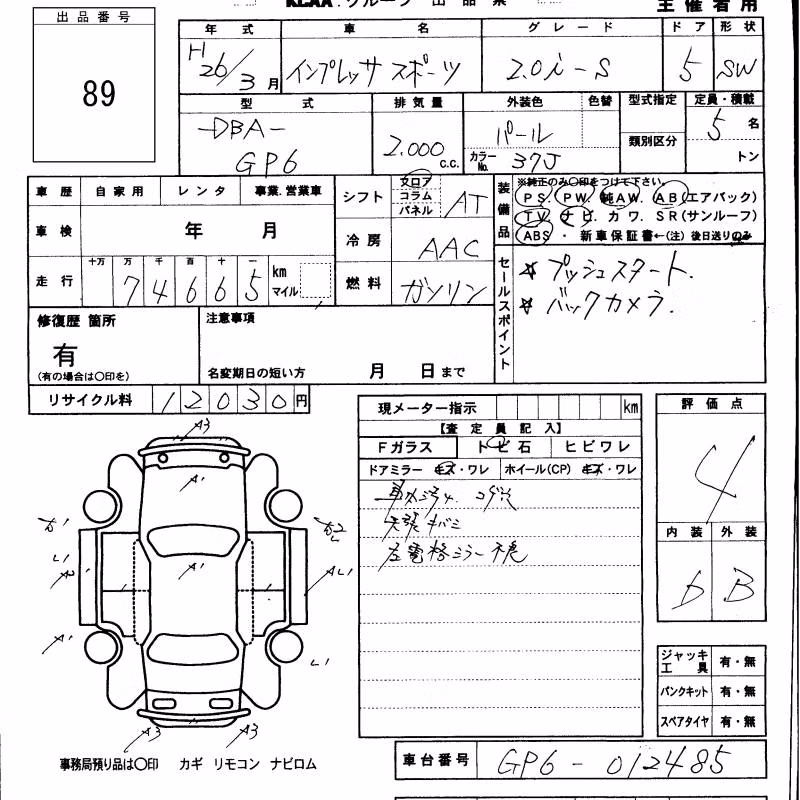 KCAA グループ 出品票
主催者用
出品番号
89
年式 車名 グレード ドア 形状
H26/3月 インプレッサ スポーツ 2.0i-S 5 SW
型式 排気量 外装色 色替 型式指定 定員・積載
-DBA- GP6 2.000 c.c. パール カラーNo. 37J 類別区分 5名 トン
車歴 自家用 レンタ 事業.営業車
車検 年 月
走行 十万 万 千 百 十 一
74665 km マイル
シフト フロア コラム パネル AT
冷房 AAC
燃料 ガソリン
装備品 ※純正のみ〇印をつけて下さい。
PS. PW. 純AW. AB(エアバック)
TV. ナビ. カワ. SR(サンルーフ)
ABS ・ 新車保証書←(注)後日送りのみ
セールスポイント
☆ プッシュスタート.
☆ バックカメラ.
修復歴 箇所
有
(有の場合は〇印を)
注意事項
名変期日の短い方 月 日まで
リサイクル料 12030円
現メーター指示 km
【査定員記入】
Fガラス トビ石 ヒビワレ
ドアミラー キズ・ワレ ホイール(CP) キズ・ワレ
天張キバミ
左電格ミラー不良
評価点
4
内装 外装
b B
A3
A1
A1
A2
A1
A1
A3
A3
L1
L1
ジャッキ工具 有・無
パンクキット 有・無
スペアタイヤ 有・無
事務局預り品は〇印 カギ リモコン ナビロム
車台番号 GP6-012485